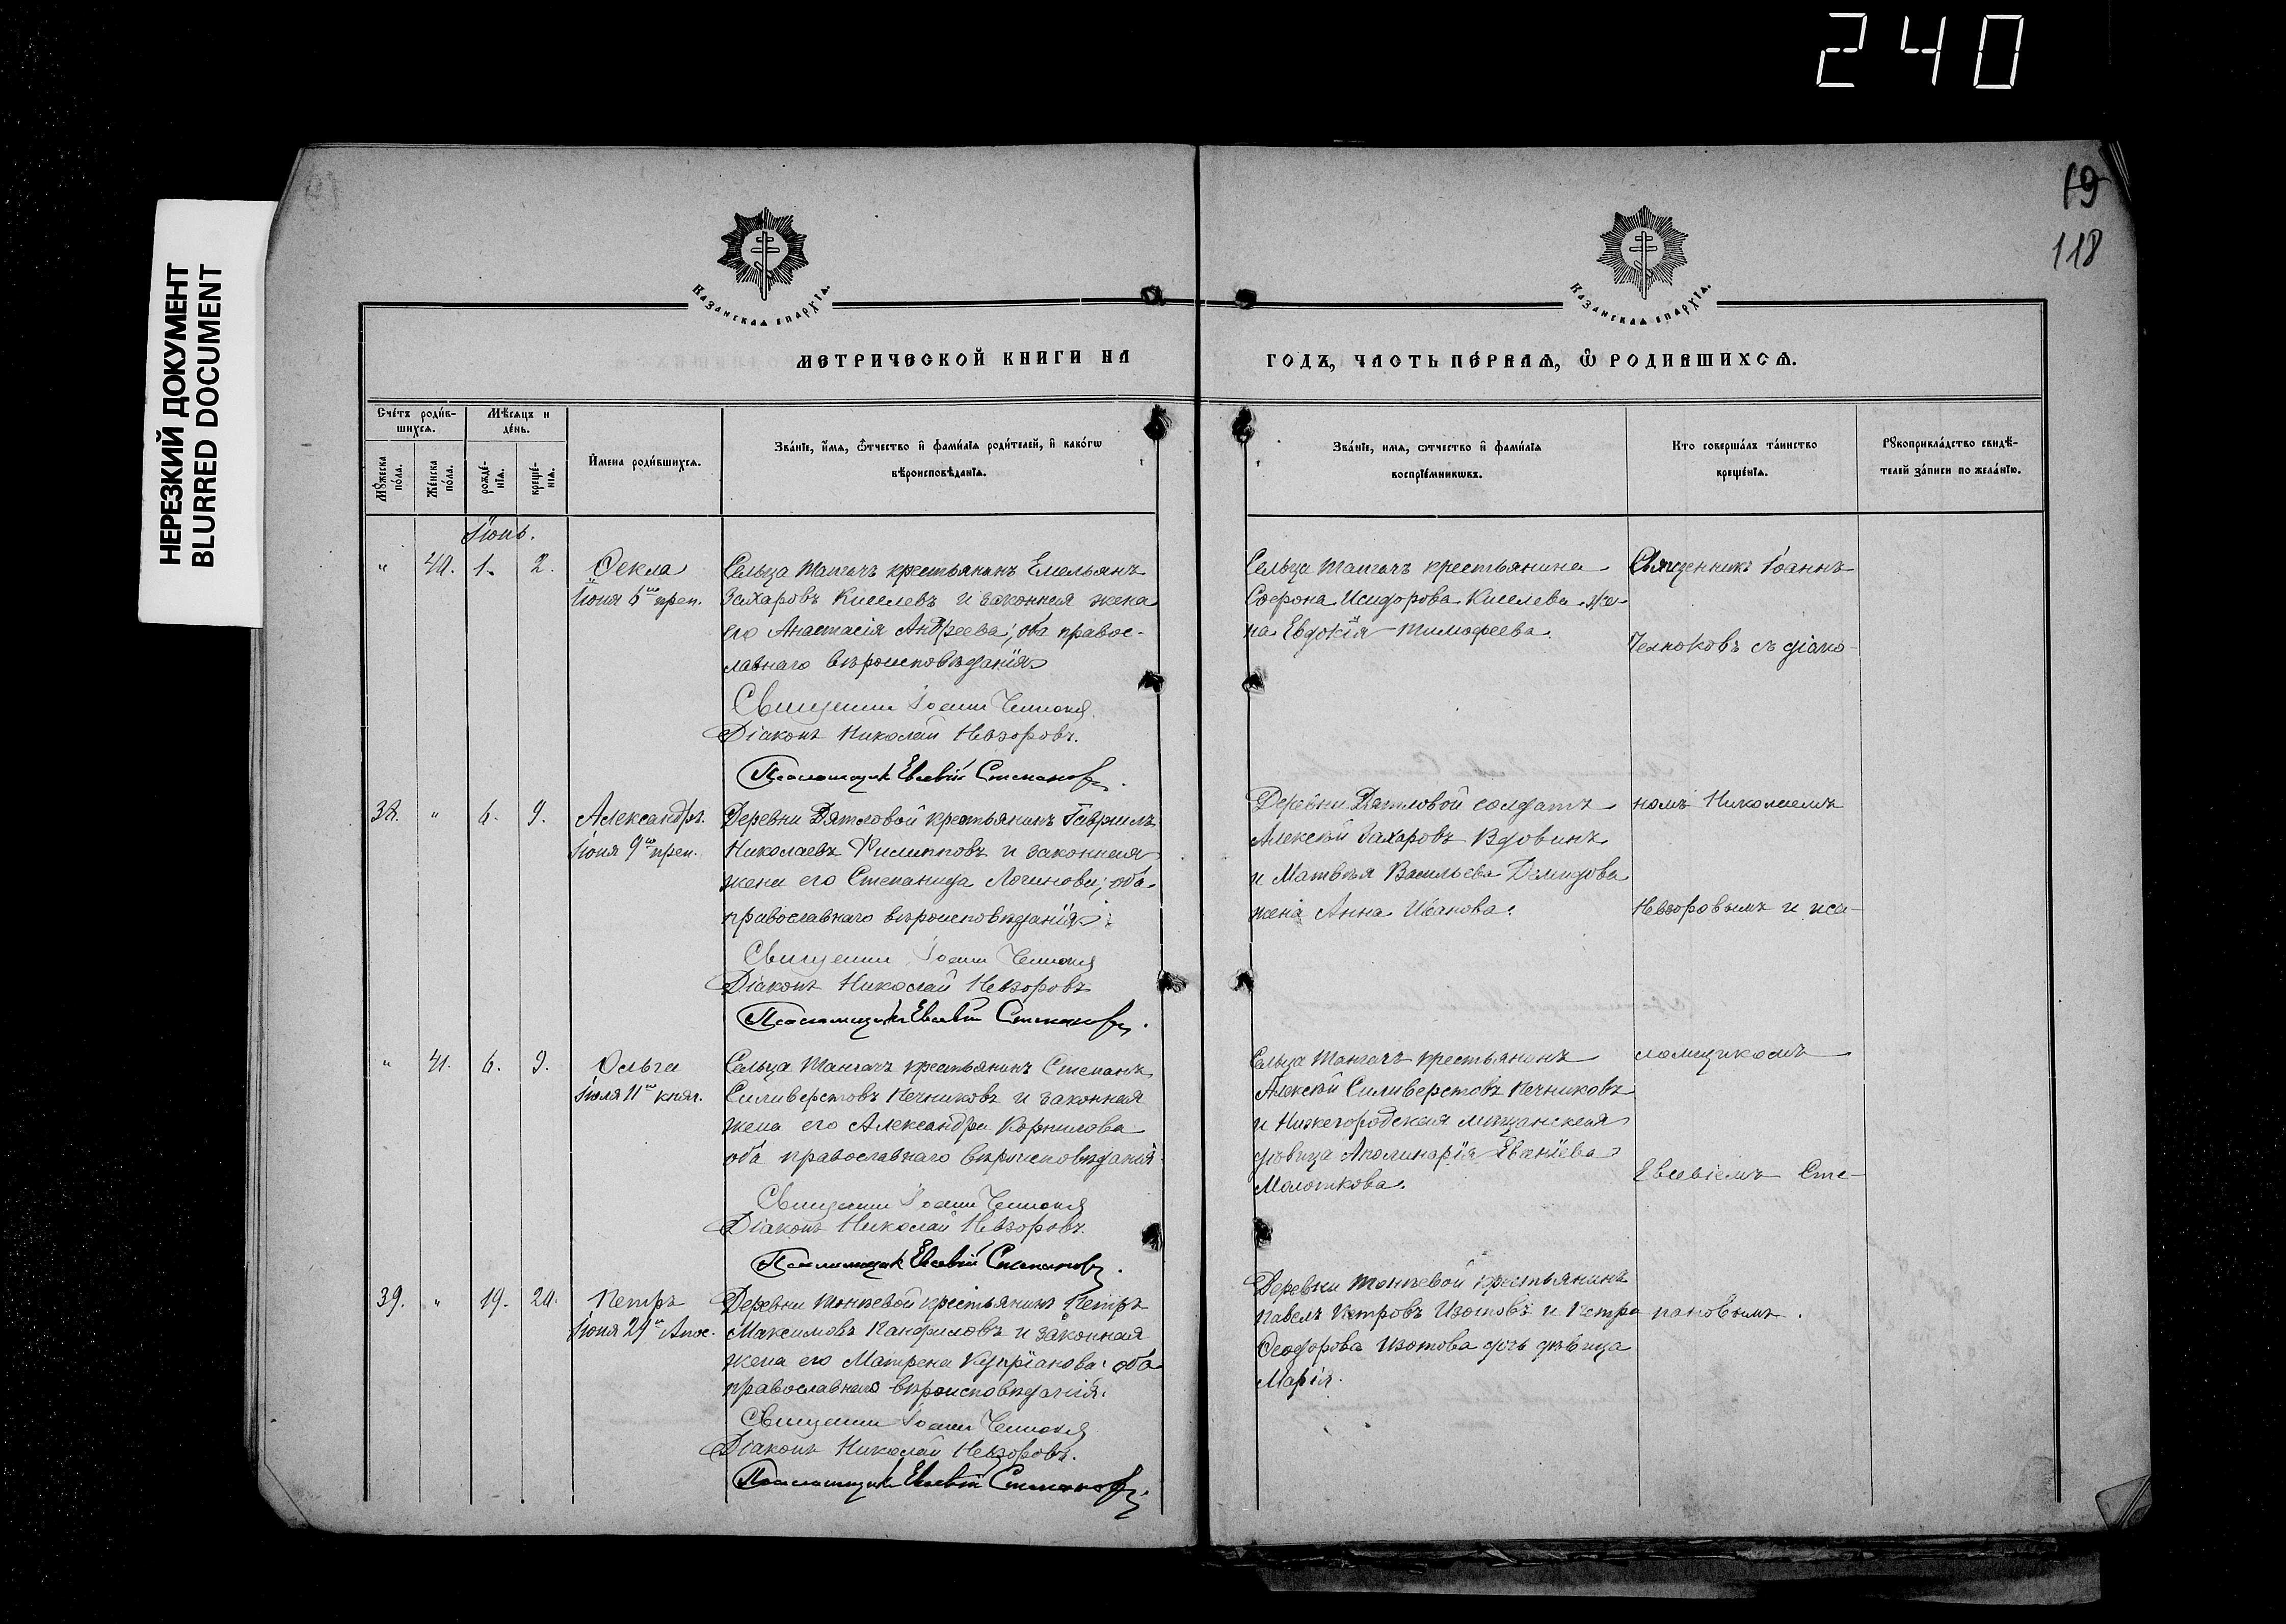 240
НЕРЕЗКИЙ ДОКУМЕНТ
BLURRED DOCUMENT
19
118
Казанская епархїа.
Казанская епархїа.
МЕТРИЧЕСКОЙ КНИГИ НА
ГОДЪ, ЧАСТЬ ПЕРВАѦ, Ѡ РОДИВШИХСѦ.
Счéтъ роди́в-
шихсѧ.
Мѣ́сѧцъ и
дéнь.
Мꙋ́жеска
по́ла.
Же́нска
по́ла.
рожде́-
нїѧ.
креще́-
нїѧ.
Имена роди́вшихсѧ.
Зва́нїе, и́мѧ, ѻ́тчество и҆ фами́лїѧ роди́телей, и҆ како́гѡ
вѣроисповѣ́данїѧ.
Зва́нїе, имѧ, ѻтчество и҆ фами́лїѧ
воспрїе́мникѡвъ.
Кто соверша́лъ та́инство
креще́нїѧ.
Рꙋкоприкла́дство свидѣ́-
телей за́писи по жела́нїю.
Іюнь.
" 40. 1. 2. Ѳекла
Іюня 6го преп.
Сельца Тангачъ крестьянинъ Емельянъ
Захаровъ Киселевъ и законная жена
его Анастасія Андреева; оба правос-
лавнаго вѣроисповѣданія
Священникъ Іоаннъ
Діаконъ Николай Невзоровъ.
Псаломщикъ Евсевій Степановъ.
Сельца Тангачъ крестьянина
Софрона Исидорова Киселева же-
на Евдокія Тимофеева.
Священникъ Іоаннъ
съ діако-
38. " 6. 9. Александръ.
Іюня 9го преп.
Деревни Дятловой крестьянинъ Гавриилъ
Николаевъ Филипповъ и законная
жена его Степанида Логинова; оба
православнаго вѣроисповѣданія
Священникъ Іоаннъ
Діаконъ Николай Невзоровъ
Псаломщикъ Евсевій Степановъ.
Деревни Дятловой солдатъ
Алексѣй Захаровъ Вдовинъ
и Матвѣя Васильева Демидова
жена Анна Иванова.
номъ Николаемъ
Невзоровымъ и пса-
" 41. 6. 9. Ольга
Іюля 11го княг.
Сельца Тангачъ крестьянинъ Степанъ
Силиверстовъ Печниковъ и законная
жена его Александра Корнилова
оба православнаго вѣроисповѣданія
Священникъ Іоаннъ
Діаконъ Николай Невзоровъ.
Псаломщикъ Евсевій Степановъ.
Сельца Тангачъ крестьянинъ
Алексѣй Силиверстовъ Печниковъ
и Нижегородская мѣщанская
дѣвица Аполинарія
Молоткова.
ломщикомъ
Евсевіемъ Сте-
39. " 19. 20. Петръ
Іюня 29го Апос.
Деревни крестьянинъ Петръ
Максимовъ Панфиловъ и законная
жена его Матрена Купріанова; оба
православнаго вѣроисповѣданія.
Священникъ Іоаннъ
Діаконъ Николай Невзоровъ.
Псаломщикъ Евсевій Степановъ.
Деревни крестьянинъ
Павелъ Петровъ Изотовъ и Петра
Ѳеодорова Изотова дочь дѣвица
Марія.
пановымъ.